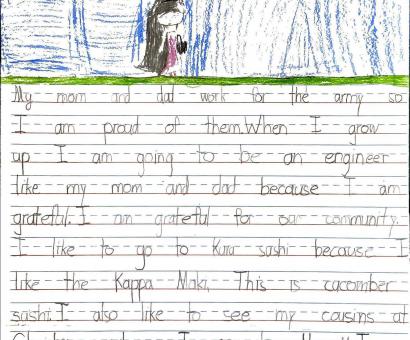 My mom and dad work for the army so
I am proud of them. When I grow
up I am going to be an engineer
like my mom and dad because I am
grateful. I am grateful for our community.
I like to go to Kura sashi because I
like the Kappa Maki, This is cacomber
sashi. I also like to see my cousins at